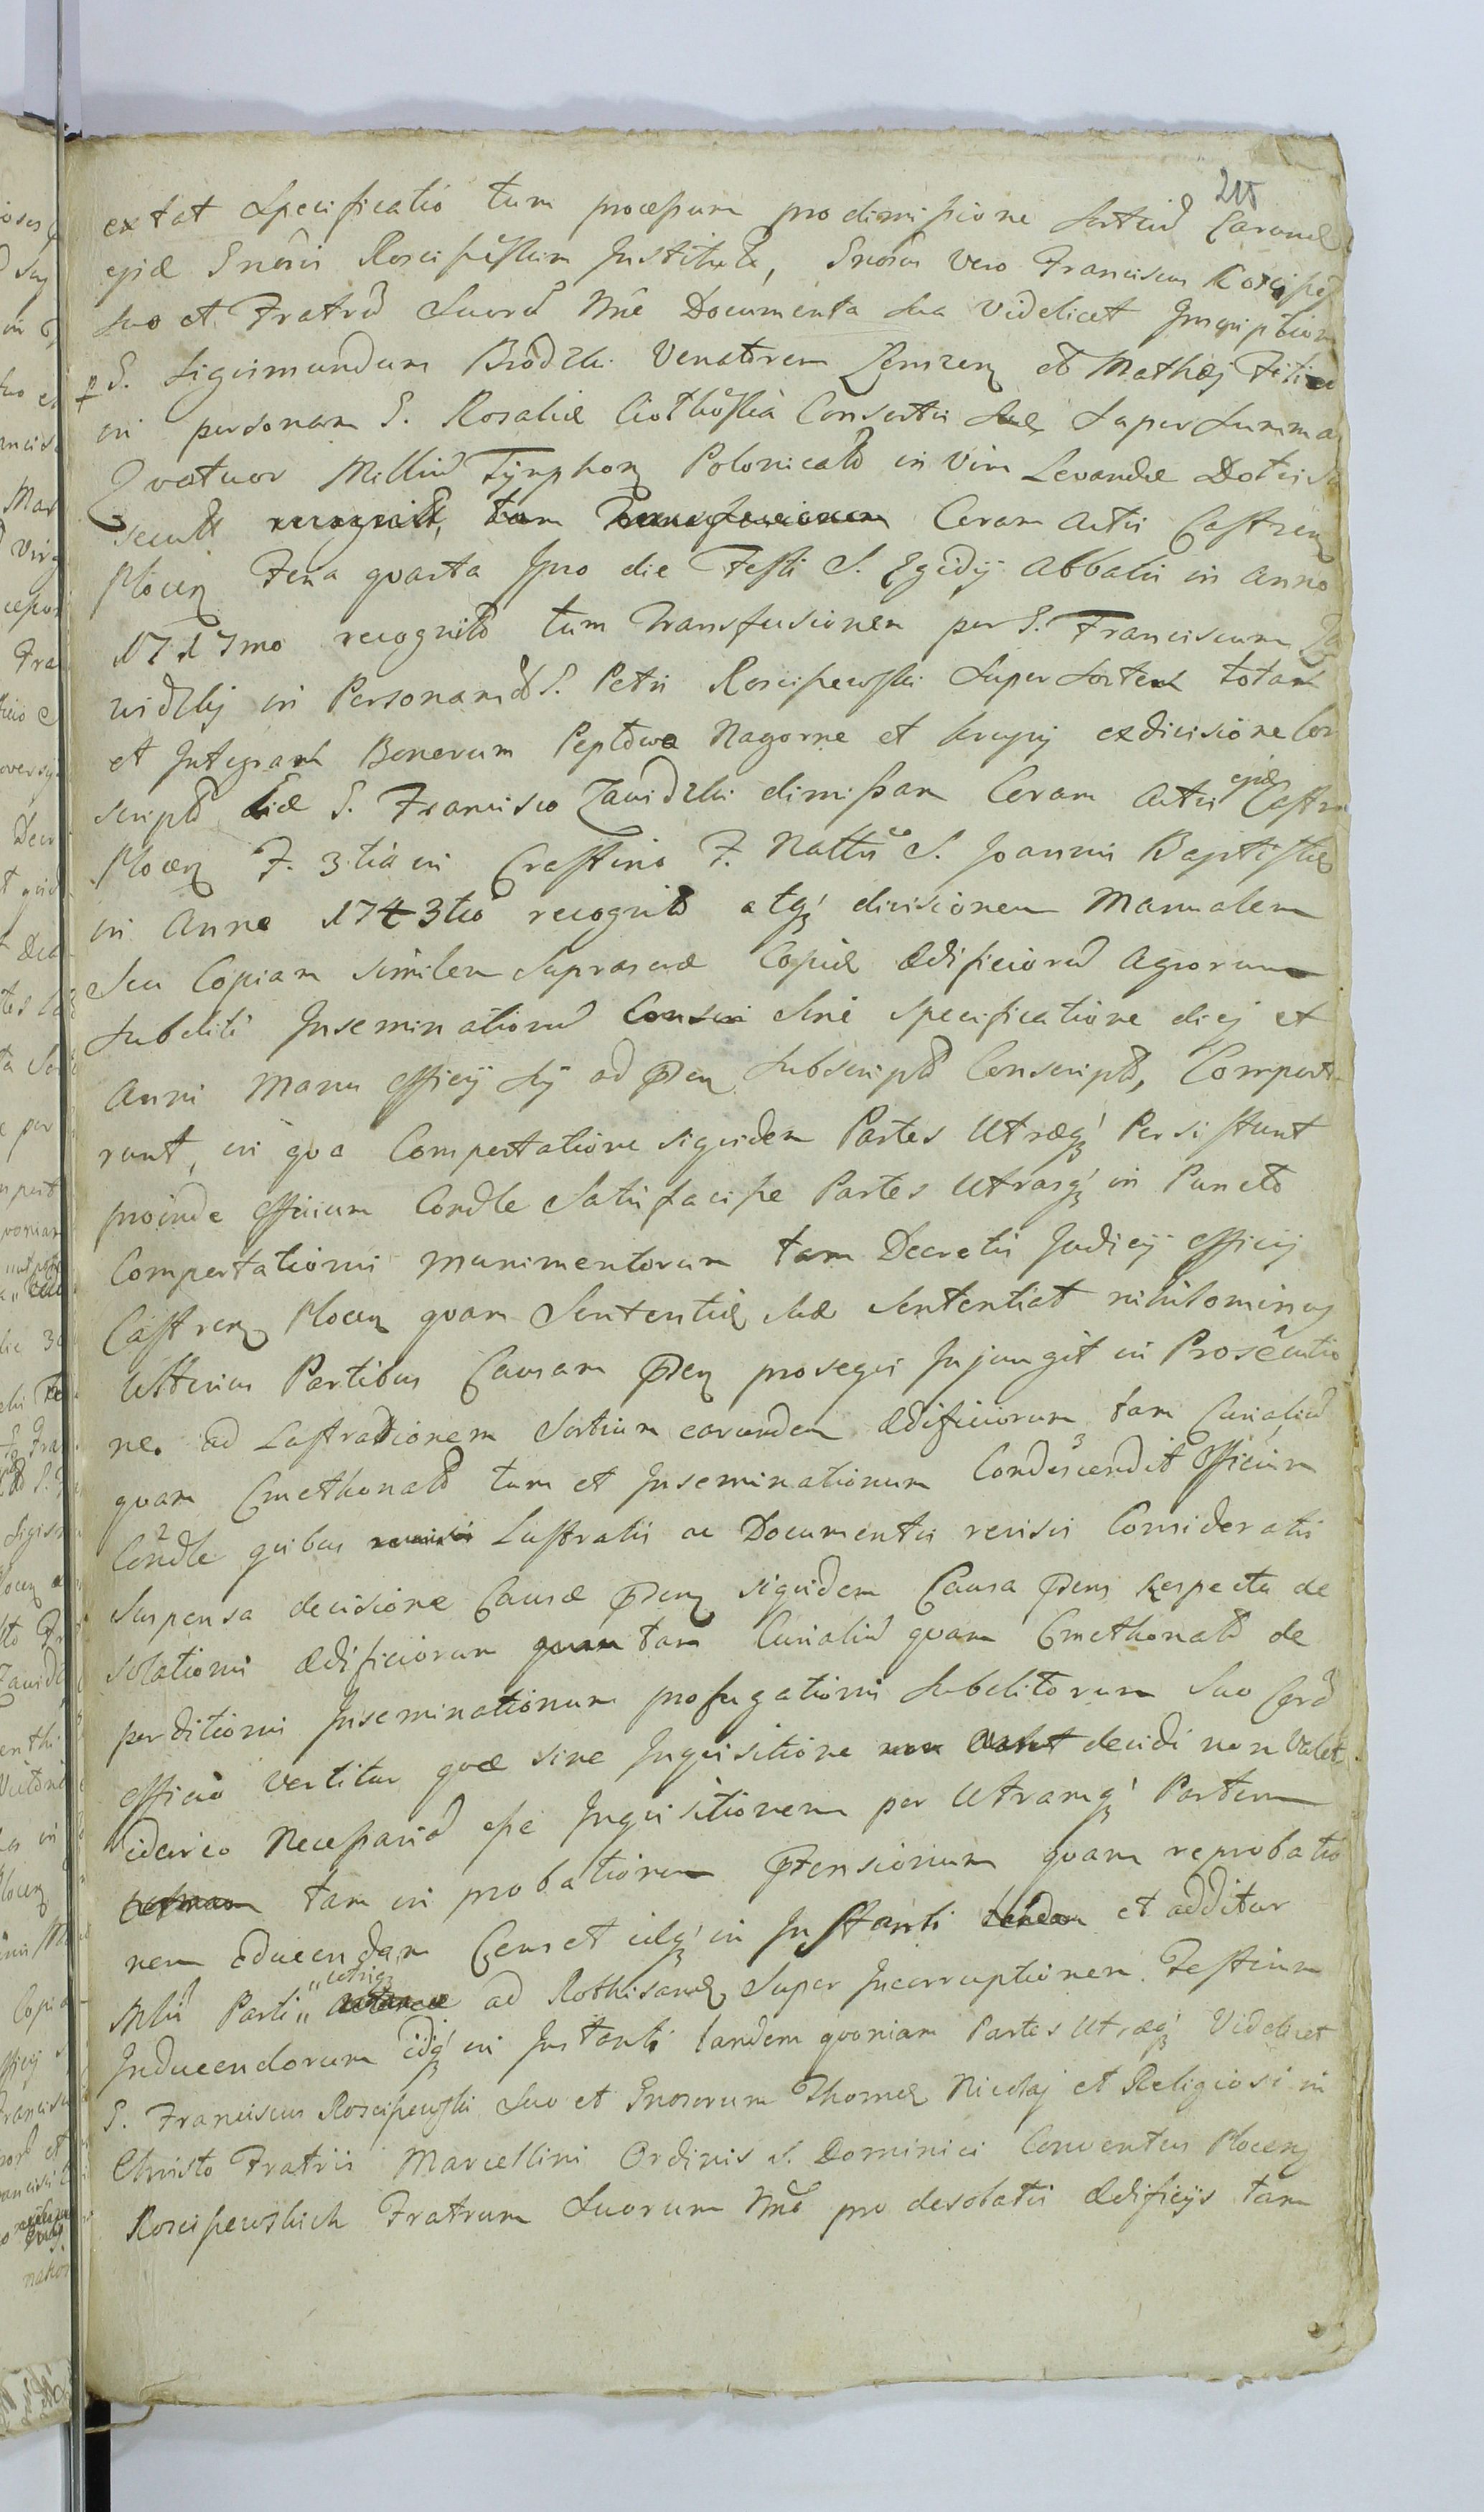 215
extat Specificatio tum pręmpum pro dimissione Sortiũ Caroneł
ejdẽ Gnõsis Rosciszewskim Institutã, Gnõsus vero Franciscus Roscisze
suo et Fratrũ Suorũ Nñe Documenta sua videlicet Inscriptiõn
p G. Sigismundum Brodzki Venatorem Zemzen et Mathæi
in personam G. Rosaliæ Ciołkoska Consortis Suæ Super Summa
Qvatuor Milliũ Tÿnphor Polonicalũ in vim Levandæ Dotis
Coram Actis Castren
Plocen Feria qvarta Ipso die Festi S. Egidij Abbatis in Anno
1717mo recognitã tum Transfusionem per G. Franciscum Za
widzkij in Personam G. Petri Rosciszewski Super Sortem totam
et Integram Bonorum Peptowo Nagorne et Krupy ex divisione con
scriptã G. Francisco Zawidzki dimissam Coram Actis ejdẽ Castren
Plocen F. 3tia in Crastino F. Nattis S. Joannis Baptistæ
in Anno 1743tio recognitã atq; divisionem Manualem
Seu Copiam similem Suprascriæ Copiæ Ædificiorũ Agrorum
Subditi Inseminationũ sine specificatione diej et
Anni Manu Officij Sij ad præn Subscriptã Conscriptã, Comporta
runt, in qva Comportatione siqvidem Partes Utræq; Persistunt
proinde Officium Condle Satisfacisse Partes Utrasq; in Puncto
Comportationis munimentorum tam Decretis Judicij Officij
Castren Plocen qvam Sententiæ Suæ Sententiat nihilominus
Ulterius Partibus Causam præn proseqvi Injungit in Prosecutio
ne. ad Lustrationem Sortium earundem Ædificiorum tam Curialiũ
qvam Cmethonalũ tum et Inseminationum Condescendit Officium
Condle qvibus Lustratis ac Documentis revisis Consideratis
Suspensa decisione Causæ præn siqvidem Causa præns respectu de
solationis Ædificiorum tam Curialiũ qvam Cmethonalũ de
perditionis Inseminationum profugationis Subditorum Suo Corã
Officio vertitur qvæ sine Inqvisitione decidi non Valet
idcirco Necessariũ esse Inqvisitionem per Utramq; Partem
tam in probationem prætensionum qvam reprobatio
nem educendam Censet idq; in Instanti et additur
Parti „utriq; ad Rothisand Super Incorruptionem Testium
Inducendorum idq; in Instanti tandem qvoniam Partes Utræq; Videlicet
G. Franciscus Rosciszewski Suo et Gnosorum Thomæ Nicolaj et Religiosi in
Christo Fratris Marcellini Ordinis S. Dominici Conventus Plocen
Rosciszewskich Fratrum Suorum Nñe pro desolatis Ædificijs tam